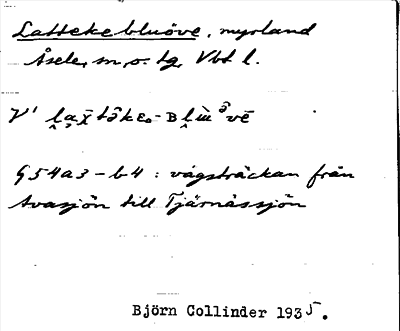 Lattekebluöve, myrland
Åsele, sn, o. tg, Vbt l.
G54a3-b4 : vägsträckan från
Avasjön till Tjärnåssjön
Björn Collinder 1935.